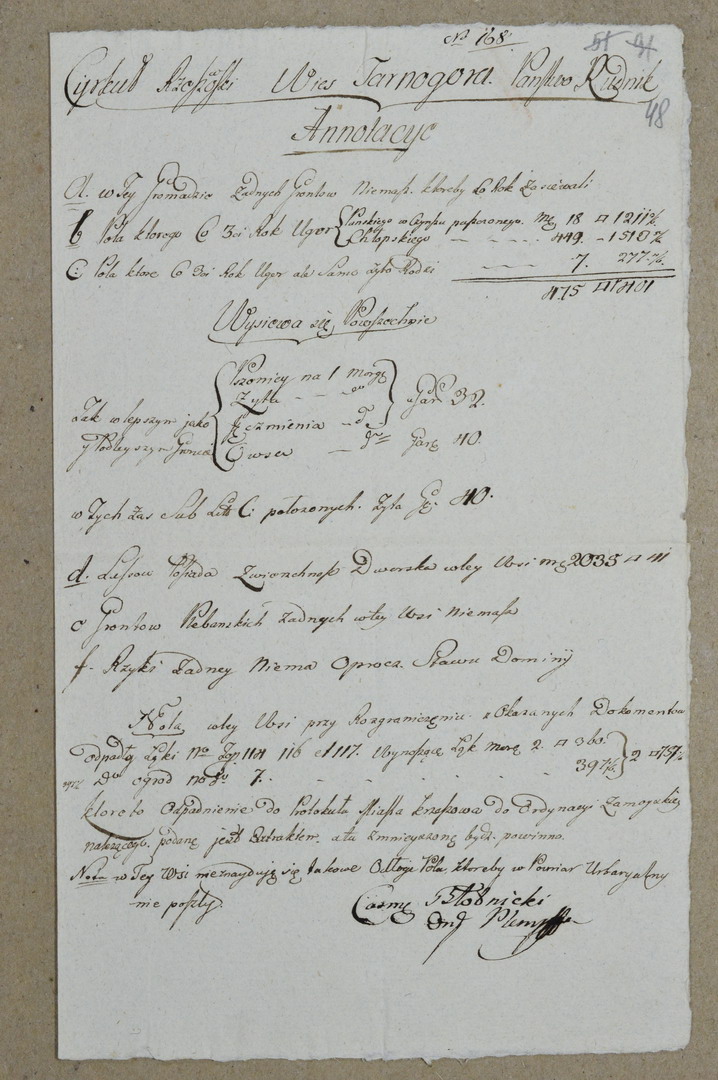 No 168.
51 41
48
Cyrkuł Rzeszowski Wies Tarnogora. Państwo Rudnik
Annotacye
a. w Tey Gromadzie żadnych Grontow Niemasz. ktoreby co Rok zasiewali
b Pola ktorego Co 3ci Rok Ugor Pańskiego w Czynszu puszczonego. Mg 18 □ 1211
Chłopskiego - - - - 449. - 1510
C: Pola ktore Co 3ci Rok Ugor ale Samo żyto Rodzi - - - 7. 277.
475 □ 1401
Wysiewa się Powszechnie
Pszenicy na 1 Morgę
Żyta - - do Gar 32.
Tak w lepszym jako
Jęczmienia - do
y Podleyszym Gruncie
Owsa - do Garc 40.
w Tych Zas Sub Litt C: położonych. Żyta G: 40.
d. Lassow Posiada Zwierzchność Dworska w tey Wsi mg 2035 □ 41
e Grontow Plebanskich Zadnych w tey Wsi Niemasz
f. Rzyki Zadney Niema Oprocz Stawu Dominij
Nota w tey Wsi przy Rozgraniczeniu z Okazanych Dokumentow
odpadły Łąki No Top 114 116 et 117. Wynoszące Łąk morg 2 □ 360.
2 □ 757
Do ogrod No 7. - - - - - 397
ktoreto Odpadnienie do Protokułu Miasta Krzeszowa do Ordynacyi Zamoyskiey
należącego. podane jest Extraktem. a tu zmnieyszone bydz powinno.
Nota w Tey Wsi nieznaydują się takowe Odłogi Pola, ktoreby w Pomiar Urbaryalny
nie poszły.
Błodnicki